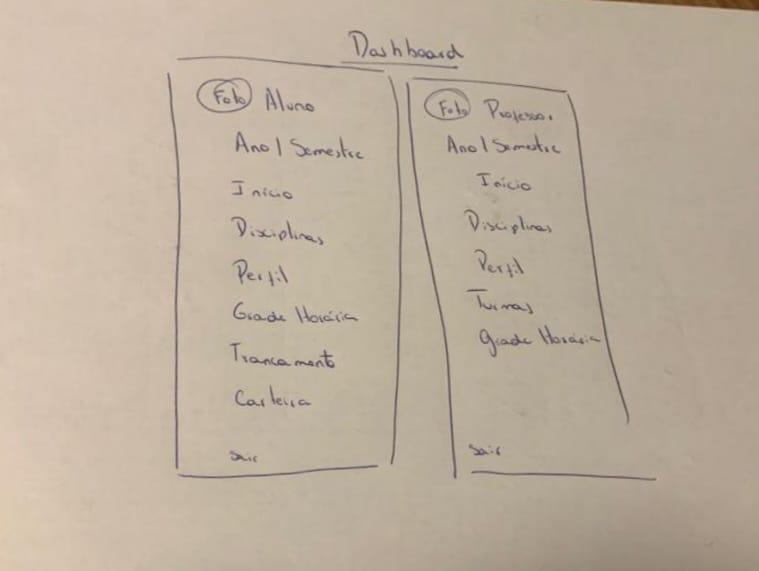 Dashboard
Foto Aluno
Ano / Semestre
Início
Disciplinas
Perfil
Grade Horária
Trancamento
Carteira
Sair
Foto Professor
Ano / Semestre
Início
Disciplinas
Perfil
Turmas
Grade Horária
Sair